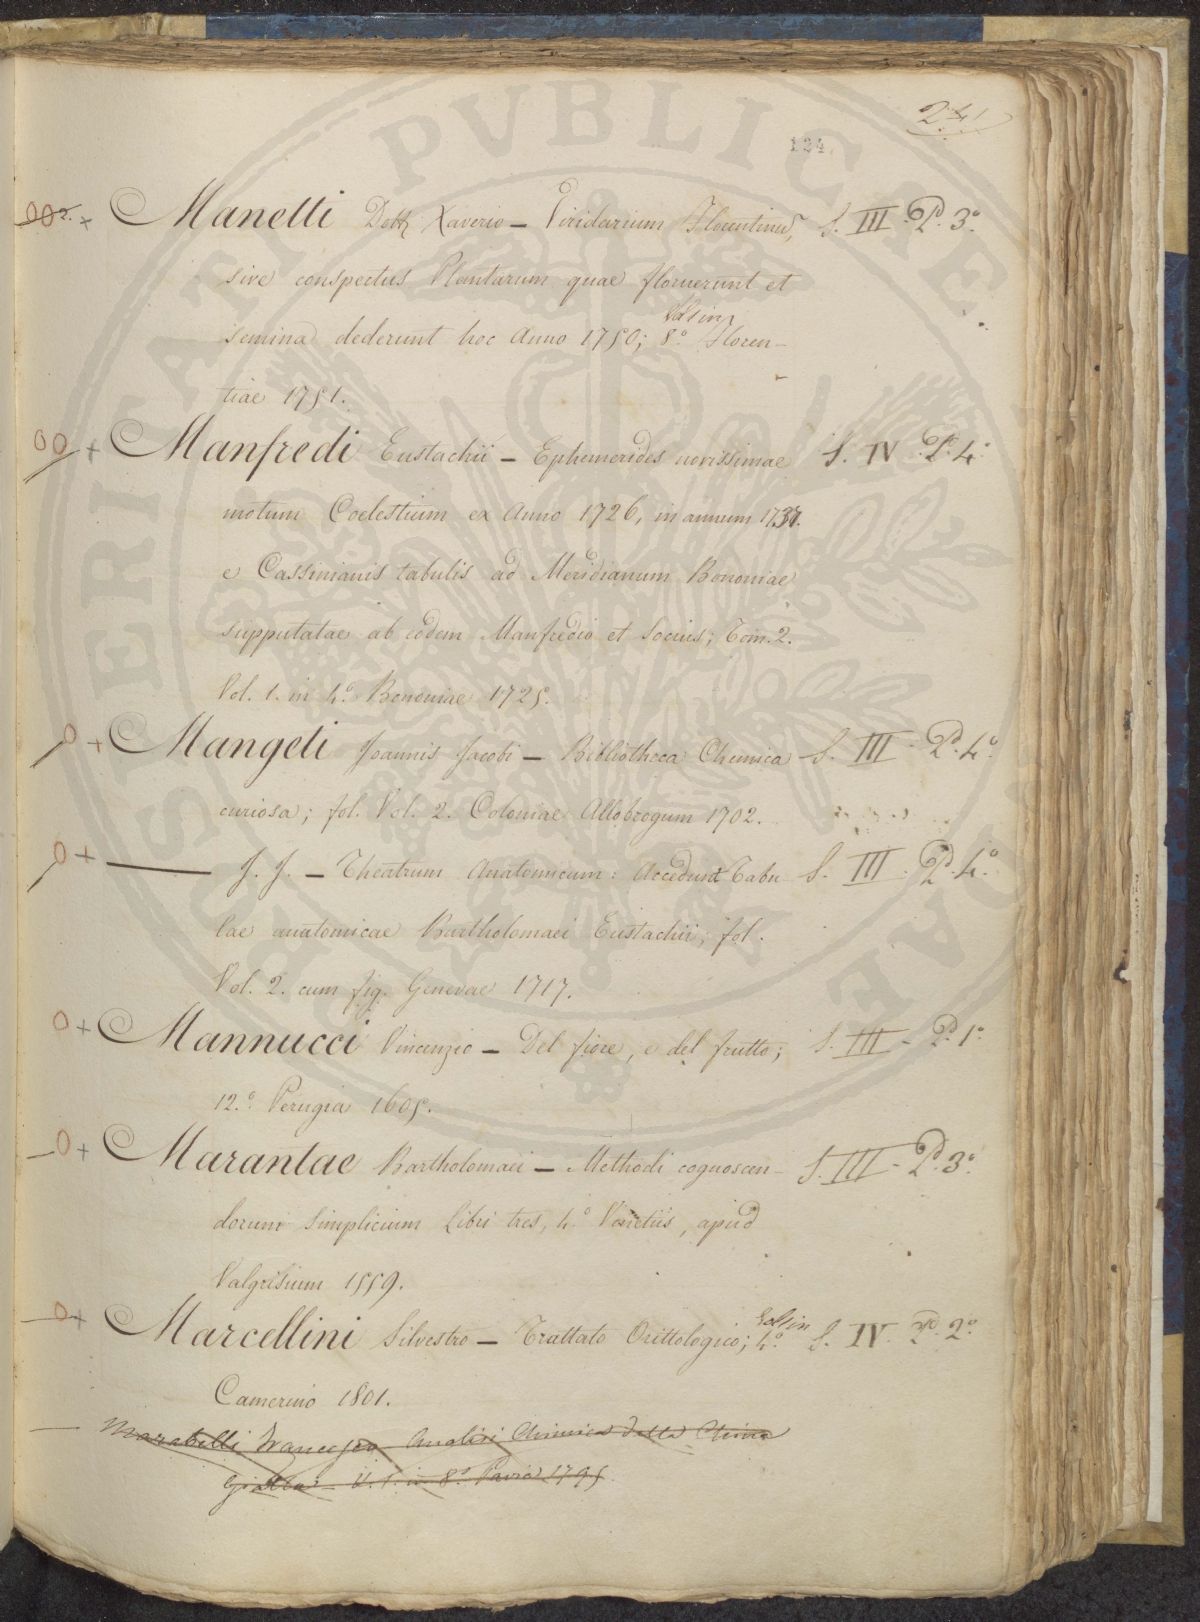 241
124
002. + Manetti Dottr Xaverio – Viridarium Florentinu, S. III – Pd. 3°.
sive conspectus Plantarum quae floruerunt et
semina dederunt hoc Anno 1750; 8.° Floren-
tiae 1751.
00 + Manfredi Eustachii – Ephemerides novissimae S. IV – Pd. 4°.
motuum Coelestium ex Anno 1726, in annum 1737.
e Cassinianis tabulis ad Meridianum Bononiae
supputatae ab eodem Manfredio et Sociis; Tom. 2.
Vol. 1. in 4.° Bononiae 1725.
0 + Mangeti Joannis Jacobi – Bibliotheca Chemica S. III – Pd. 4°.
curiosa; fol. Vol. 2. Coloniae Allobrogum 1702.
0 + — J. J. – Theatrum Anatomicum: Accedunt Tabu S. III – Pd. 4.°
lae anatomicae Bartholomaei Eustachii; fol.
Vol. 2. cum fig. Genevae 1717.
0 + Mannucci Vincenzio – Del fiore, e del frutto; S. III – Pd. 1°.
12.° Perugia 1605.
0 + Marantae Bartholomaei – Methodi cognoscen- S. III – Pd. 3°.
dorum Simplicium Libri tres, 4.° Venetiis, apud
Valgrisium 1559.
0 + Marcellini Silvestro – Trattato Orittologico; 4.° S. IV. Pd. 2°.
Camerino 1801.
Marabelli Francesco Analisi Chimica della China
Gialla V. 1. in 8° Pavia 1795
PROSPERITATI PVBLICAE AVGENDAE